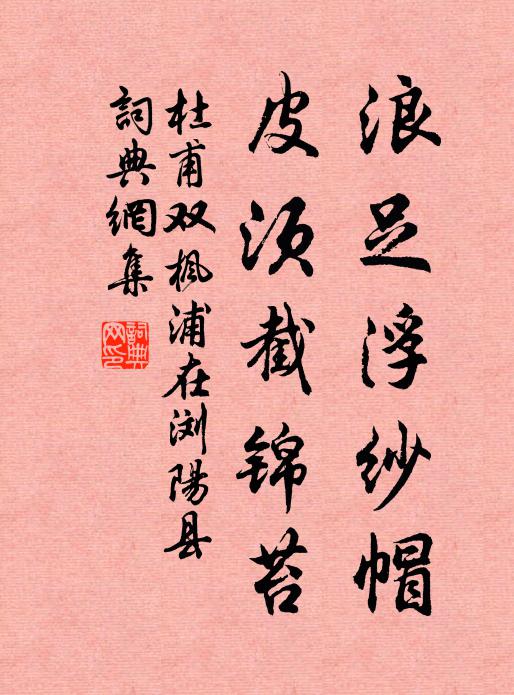 浪足浮纱帽
皮须截锦苔
杜甫双枫浦在浏陽县
詞典網集
詞典
网印